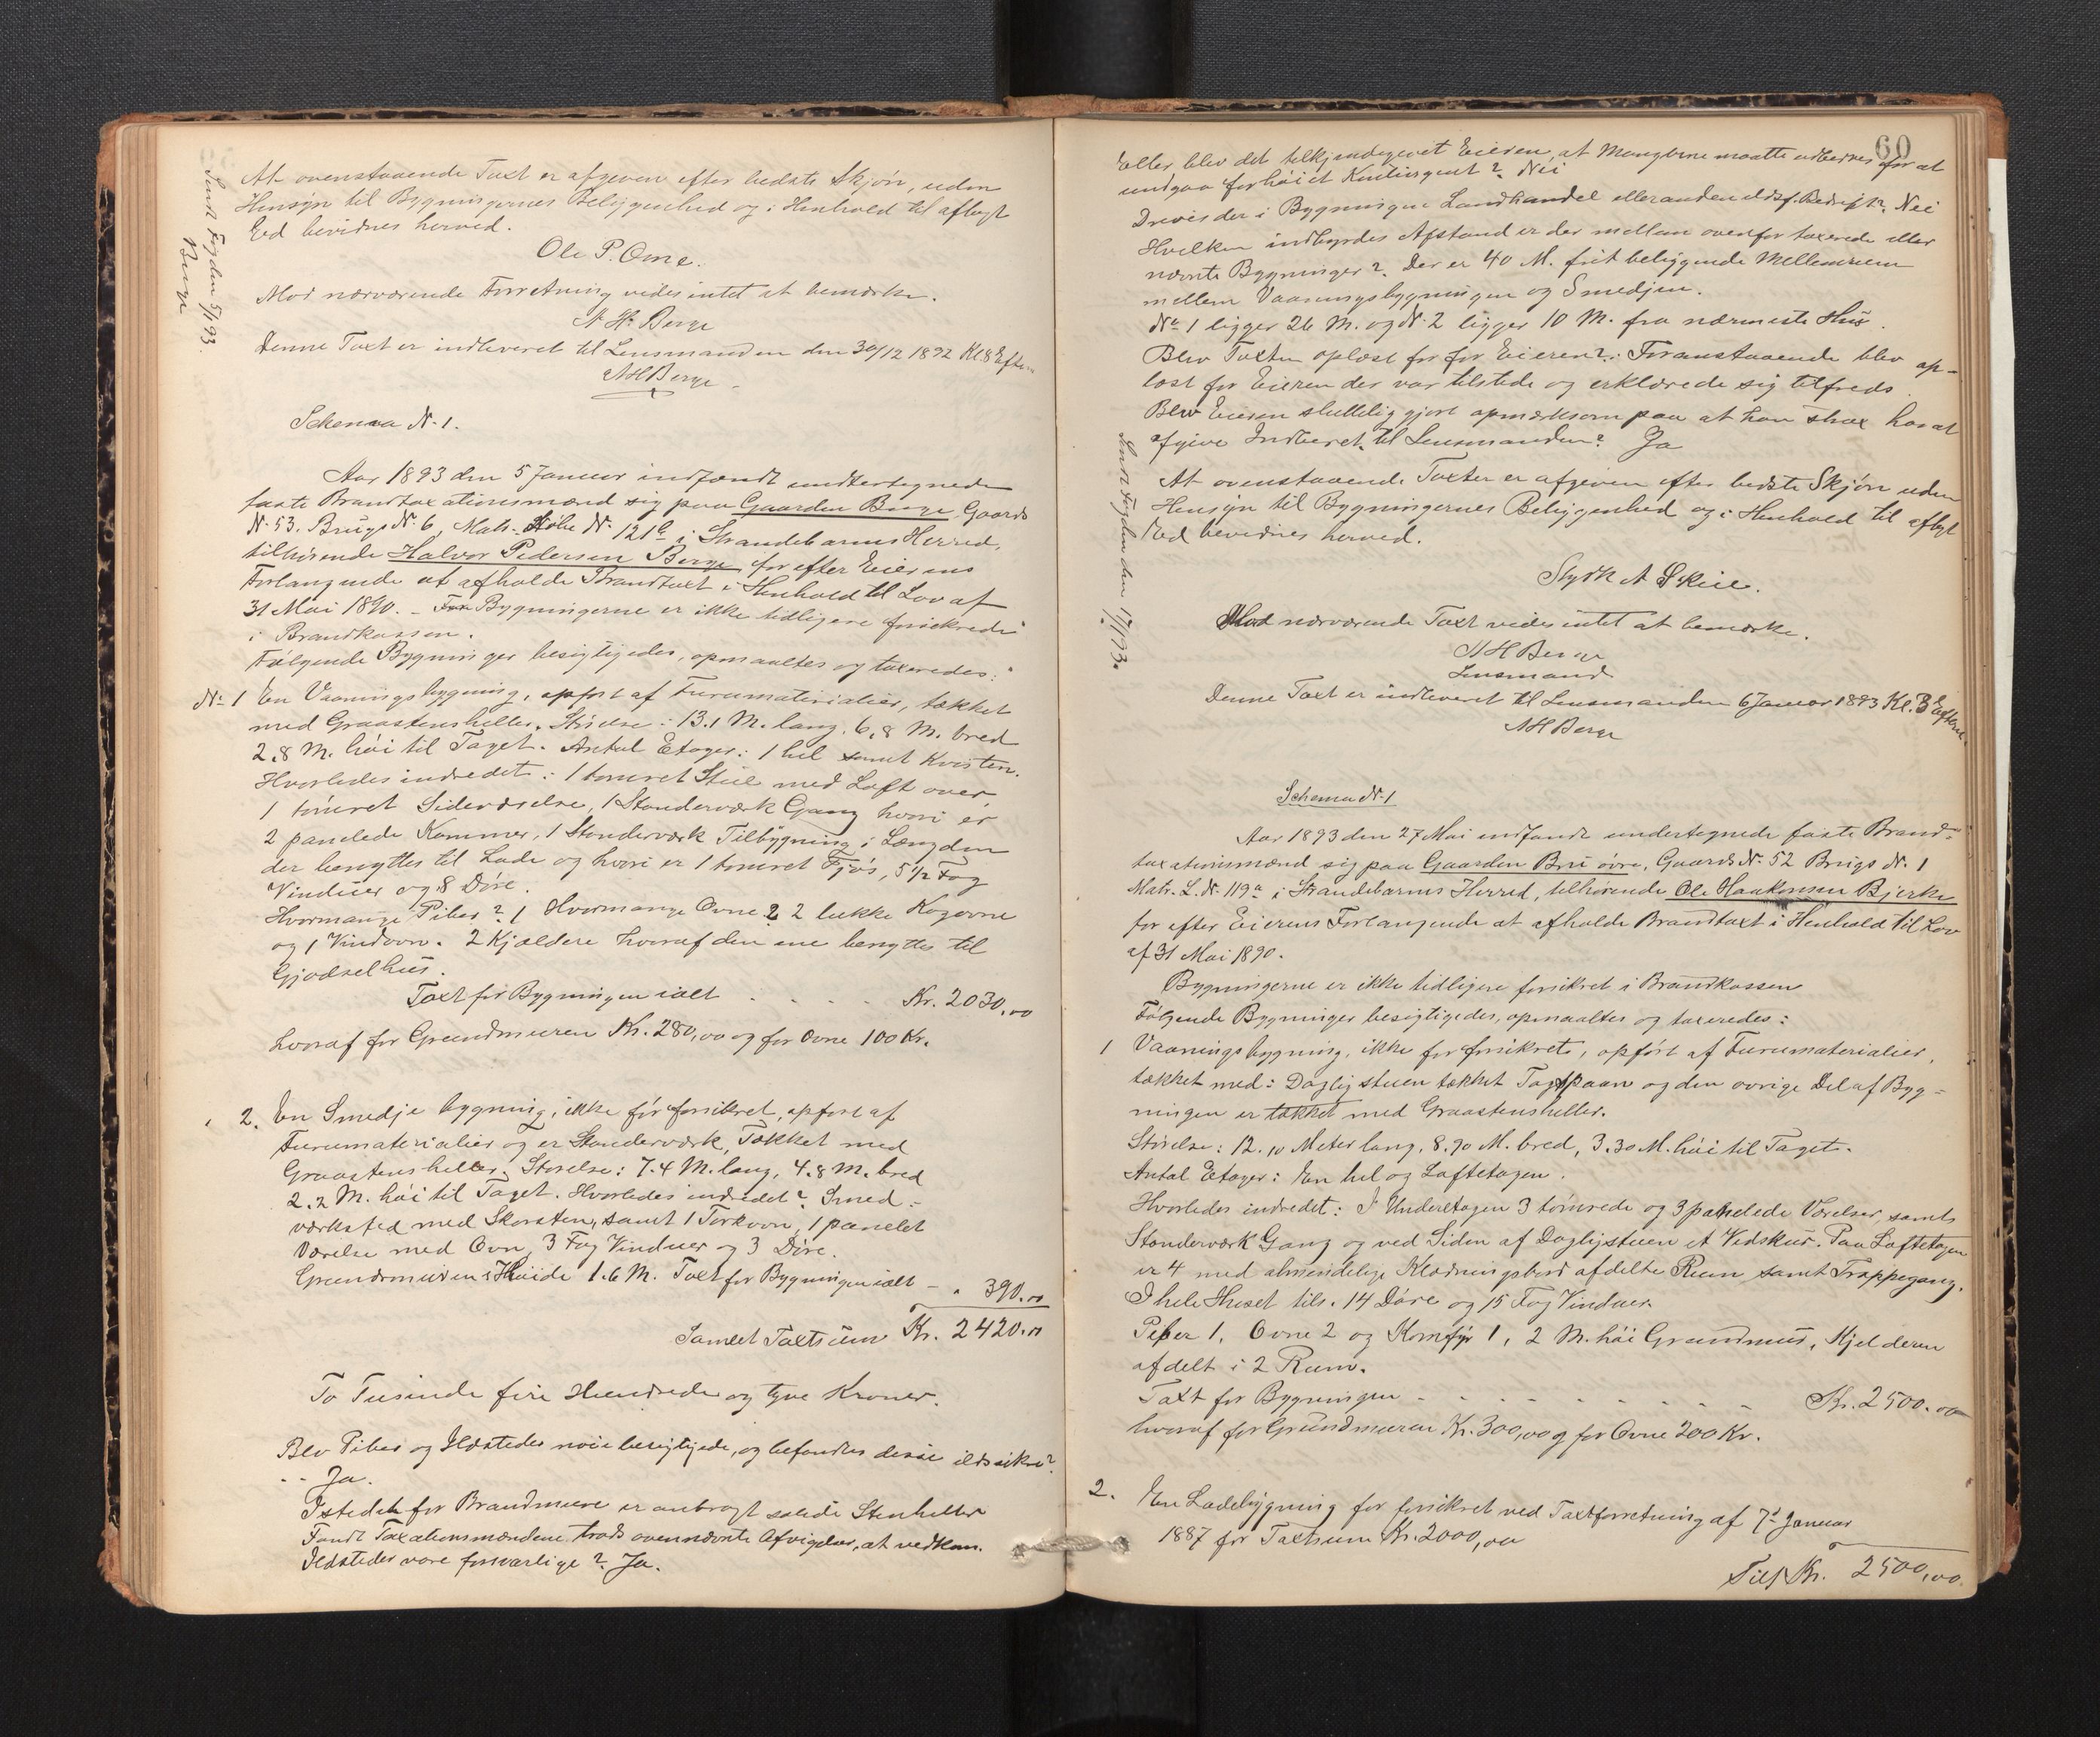 At ovenstaaende Taxt er afgiven efter bedste Skjøn, uden
Hensyn til Bygningernes Beliggenhed og i Henhold til aflagt
Ed bevidnes herved.
Ole P. Ome.
Mod nærværende Forretning vides intet at bemærke.
N. H. Berge
Denne Taxt er indleveret til Lensmanden den 30/12 1892 Kl 8 Efterm
NHBerge
Sendt Fogden 5/1 93.
Berge
Schema N. 1.
Aar 1893 den 5 Januar indfandt undertegnede
faste Brandtaxationsmænd sig paa Gaarden Berge Gaards
N. 53. Brugs N. 6, Matr. Løbe N. 121a i Strandebarms Herred,
tilhørende Halvor Pedersen Berge for efter Eierens
Forlangende at afholde Brandtaxt i Henhold til Lov af
31 Mai 1890. – Bygningerne er ikke tidligere forsikrede
i Brandkassen.
Følgende Bygninger besigtigedes, opmaaltes og taxeredes:
No 1 En Vaaningsbygning, opført af Furumaterialier, tækket
med Graastensheller. Størelse: 13.1 M. lang, 6,8 M. bred
2,8 M. høi til Taget. Antal Etager: 1 hel samt Kvisten.
Hvorledes indredet: 1 tømret Stue med Loft over,
1 tømret Sideværelse, 1 Stonderværk Gang hvori er
2 panelede Kammer, 1 Stonderværk Tilbygning i Længden
der benyttes til Lade og hvori er 1 tømret Fjøs, 5 1/2 Fag
Vinduer og 8 Døre.
Hvormange Piber? 1 Hvormange Ovne? 2 lukke Kogeovne
og 1 Vindovn. 2 Kjældere hvoraf den ene benyttes til
Gjødselhus.
Taxt for Bygningen ialt . . . . . Kr. 2030,00
hvoraf for Grundmuren Kr. 280,00 og for Ovne 100 Kr.
2. En Smedjebygning, ikke før forsikret, opført af
Furumaterialier og er Stonderværk, Tækket med
Graastensheller. Størelse: 7.4 M. lang, 4.8 M. bred
2.2 M. høi til Taget. Hvorledes indredet? Smed-
værksted med Skorsten, samt 1 Torkovn, 1 panelet
Værelse med Ovn, 3 Fag Vinduer og 3 Døre.
Grundmurens Høide 1.6 M. Taxt for Bygningen ialt – " 390.00
Samlet Taxtsum Kr. 2420.00
To Tusinde fire Hundrede og tyve Kroner.
Blev Piber og Ildsteder nøie besigtigede, og befandtes disse ildssikre?
-- Ja.
Istedet for Brandmure er anbragt solide Stenheller
Fandt Taxationsmændene trods ovennævnte Afvigelser, at vedkom.
Ildsteder vare forsvarlige? Ja.
60
Eller blev det tilkjendegivet Eieren, at Manglerne maatte udbedres for at
undgaa forhøiet Kontingent? Nei
Dreves der i Bygningen Landhandel eller anden ildsf. Bedrift? Nei
Hvilken indbyrdes Afstand er der mellem ovenfor taxerede eller
nævnte Bygninger? Der er 40 M. frit beliggende Mellemrum
mellem Vaaningsbygningen og Smedjen.
No 1 ligger 26 M. og N. 2 ligger 10 M. fra nærmeste Hus.
Blev Taxten oplæst for for Eieren? Foranstaaende blev op-
læst for Eieren der var tilstede og erklærede sig tilfreds.
Blev Eieren sluttelig gjort opmærksom paa at han strax har at
afgive Indberet. til Lensmanden? Ja
At ovenstaaende Taxter er afgiven efter bedste Skjøn uden
Hensyn til Bygningernes Beliggenhed og i Henhold til aflagt
Ed bevidnes herved.
Styrk A Skeie.
Mod nærværende Taxt vides intet at bemærke.
N H Berge
Lensmand
Denne Taxt er indleveret til Lensmanden 6 Januar 1893 Kl. 3 Efterm.
NHBerge
Sendt Fogden den 17/1 93.
Schema N. 1
Aar 1893 den 27 Mai indfandt undertegnede faste Brand-
taxationsmænd sig paa Gaarden Bru øvre, Gaards N. 52 Brugs N. 1
Matr. L. N. 119a i Strandebarms Herred, tilhørende Ole Haakonsen Bjerke
for efter Eierens Forlangende at afholde Brandtaxt i Henhold til Lov
af 31 Mai 1890.
Bygningerne er ikke tidligere forsikret i Brandkassen
Følgende Bygninger besigtigedes, opmaaltes og taxeredes:
1 Vaaningsbygning, ikke før forsikrets, opført af Furumaterialier,
tækket med: Dagligstuen tækket Tagspaan og den øvrige Del af Byg-
ningen er tækket med Graastensheller.
Størelse: 12.10 Meter lang, 8.70 M. bred, 3.30 M. høi til Taget.
Antal Etager: En hel og Loftetagen.
Hvorledes indredet: I Underetagen 3 tømrede og 3 panelede Værelser samt
Stonderværk Gang og ved Siden af Dagligstuen et Vedskur. Paa Loftetagen
er 4 med almindelige Klædningsbord afdelte Rum samt Trappegang.
I hele Huset tils. 14 Døre og 15 Fag Vinduer.
Piber 1, Ovne 2 og Komfyr 1, 2 M. høi Grundmur, Kjelderen
afdelt i 2 Rum.
Taxt for Bygningen - - - - - - - Kr. 2500.00
hvoraf for Grundmuren Kr. 300,00 og for Ovne 200 Kr.
2. En Ladebygning før forsikret ved Taxtforretning af 7d Januar
1887 for Taxtsum Kr. 2000,00
Tils Kr. 2500,00